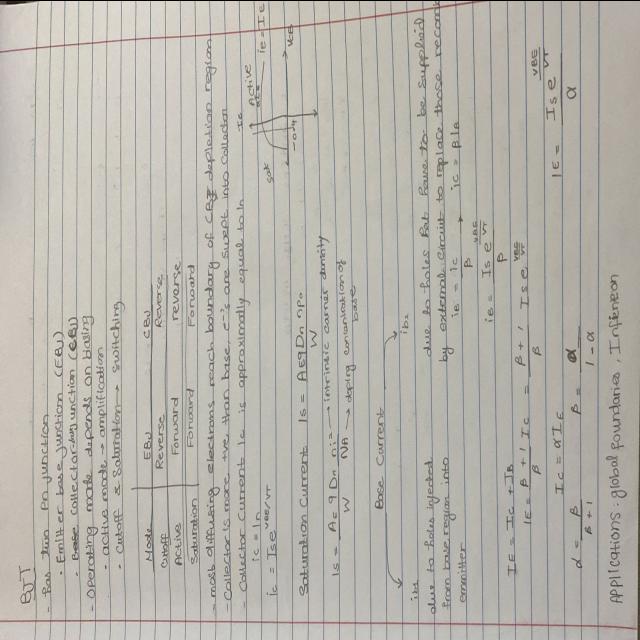 BJT
- Has two Pn junction
• Emitter base junction (EBJ)
• Base collector junction (CBJ)
- Operating mode depends on biasing
• active mode → amplification
• Cutoff & Saturation → switching
Mode EBJ CBJ
Cutoff Reverse Reverse
Active Forward reverse
Saturation Forward Forward
- most diffusing electrons reach boundary of CBJ depletion region
- Collector is more +ve than base, e⁻s are swept into collector
- Collector Current ic is approximately equal to In
ic = In
ic = Is e^VBE/VT
Ic
Active
sat
-0.4
VCB
iE = IE
Saturation Current Is = AE q Dn npo / W
Is = AE q Dn ni² / W NA
→ intrinsic carrier density
→ doping concentration of base
Base Current
ib1 ib2
due to holes injected from base region into emmitter
due to holes that have to be supplied by external circuit to replace those recom
iB = ic / β ic = β IB
iB = Is e^VBE/VT / β
IE = Ic + IB
IE = β + 1 / β Ic = β + 1 / β Is e^VBE/VT IE = Is e^VBE/VT / α
Ic = α IE
α = β / β + 1 β = α / 1 - α
APPlications: global foundaries, Infineon